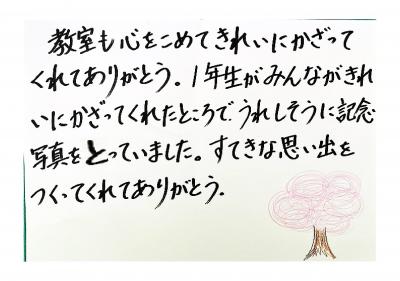 教室も心をこめてきれいにかざって
くれてありがとう。1年生がみんながきれ
いにかざってくれたところで、うれしそうに記念
写真をとっていました。すてきな思い出を
つくってくれてありがとう.